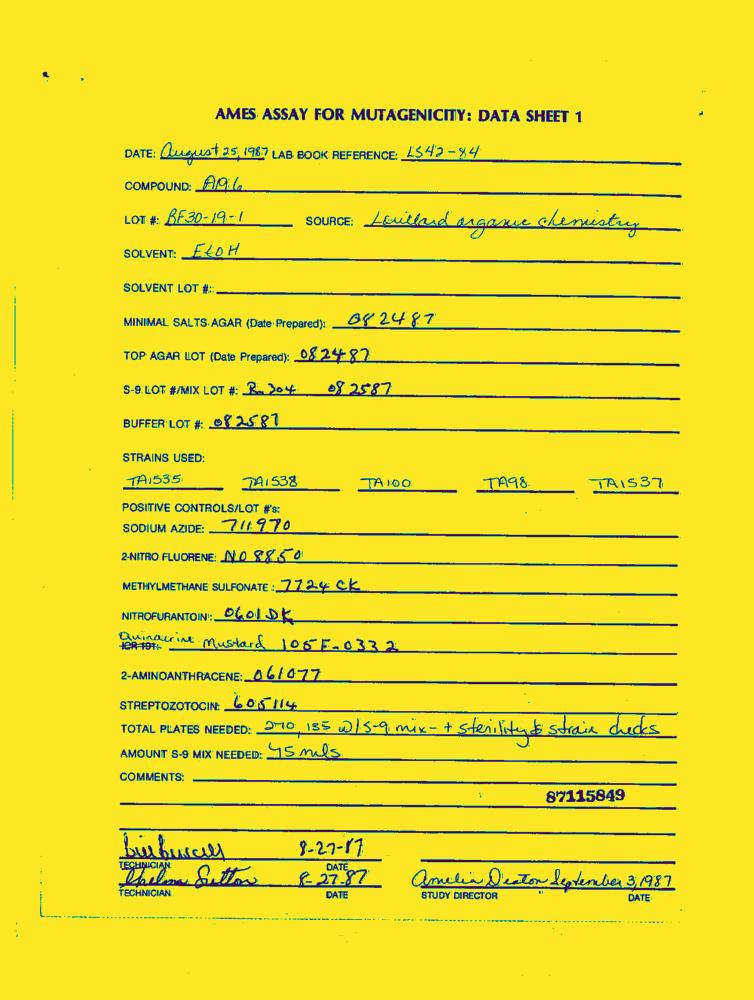 AMES ASSAY FOR MUTAGENICITY: DATA SHEET 1
DATE: August 25, 1987 LAB BOOK REFERENCE: LS42-84
COMPOUND: A96
LOT #: BF30-19-1 SOURCE: Lorillard organic chemistry
SOLVENT: EtOH
SOLVENT LOT #:
MINIMAL SALTS AGAR (Date Prepared): 082487
TOP AGAR LOT (Date Prepared): 082487
S-9 LOT #/MIX LOT #: R304 082587
BUFFER LOT #: 082587
STRAINS USED:
TA1535 TA1538 TA100 TA98 TA1537
POSITIVE CONTROLS/LOT #'s:
SODIUM AZIDE: 711970
2-NITRO FLUORENE: NO 8850
METHYLMETHANE SULFONATE: 7724 CK
NITROFURANTOIN: 0601 DK
Quinacrine
ICR 191: Mustard 105F-0332
2-AMINOANTHRACENE: 061077
STREPTOZOTOCIN: 605114
TOTAL PLATES NEEDED: 270, 135 w/S-9 mix - + sterility & strain checks
AMOUNT S-9 MIX NEEDED: 45 mls
COMMENTS:
87115849
8-27-87
TECHNICIAN DATE
Thelma Sutton 8-27-87 Amelia Deaton September 3, 1987
TECHNICIAN DATE STUDY DIRECTOR DATE